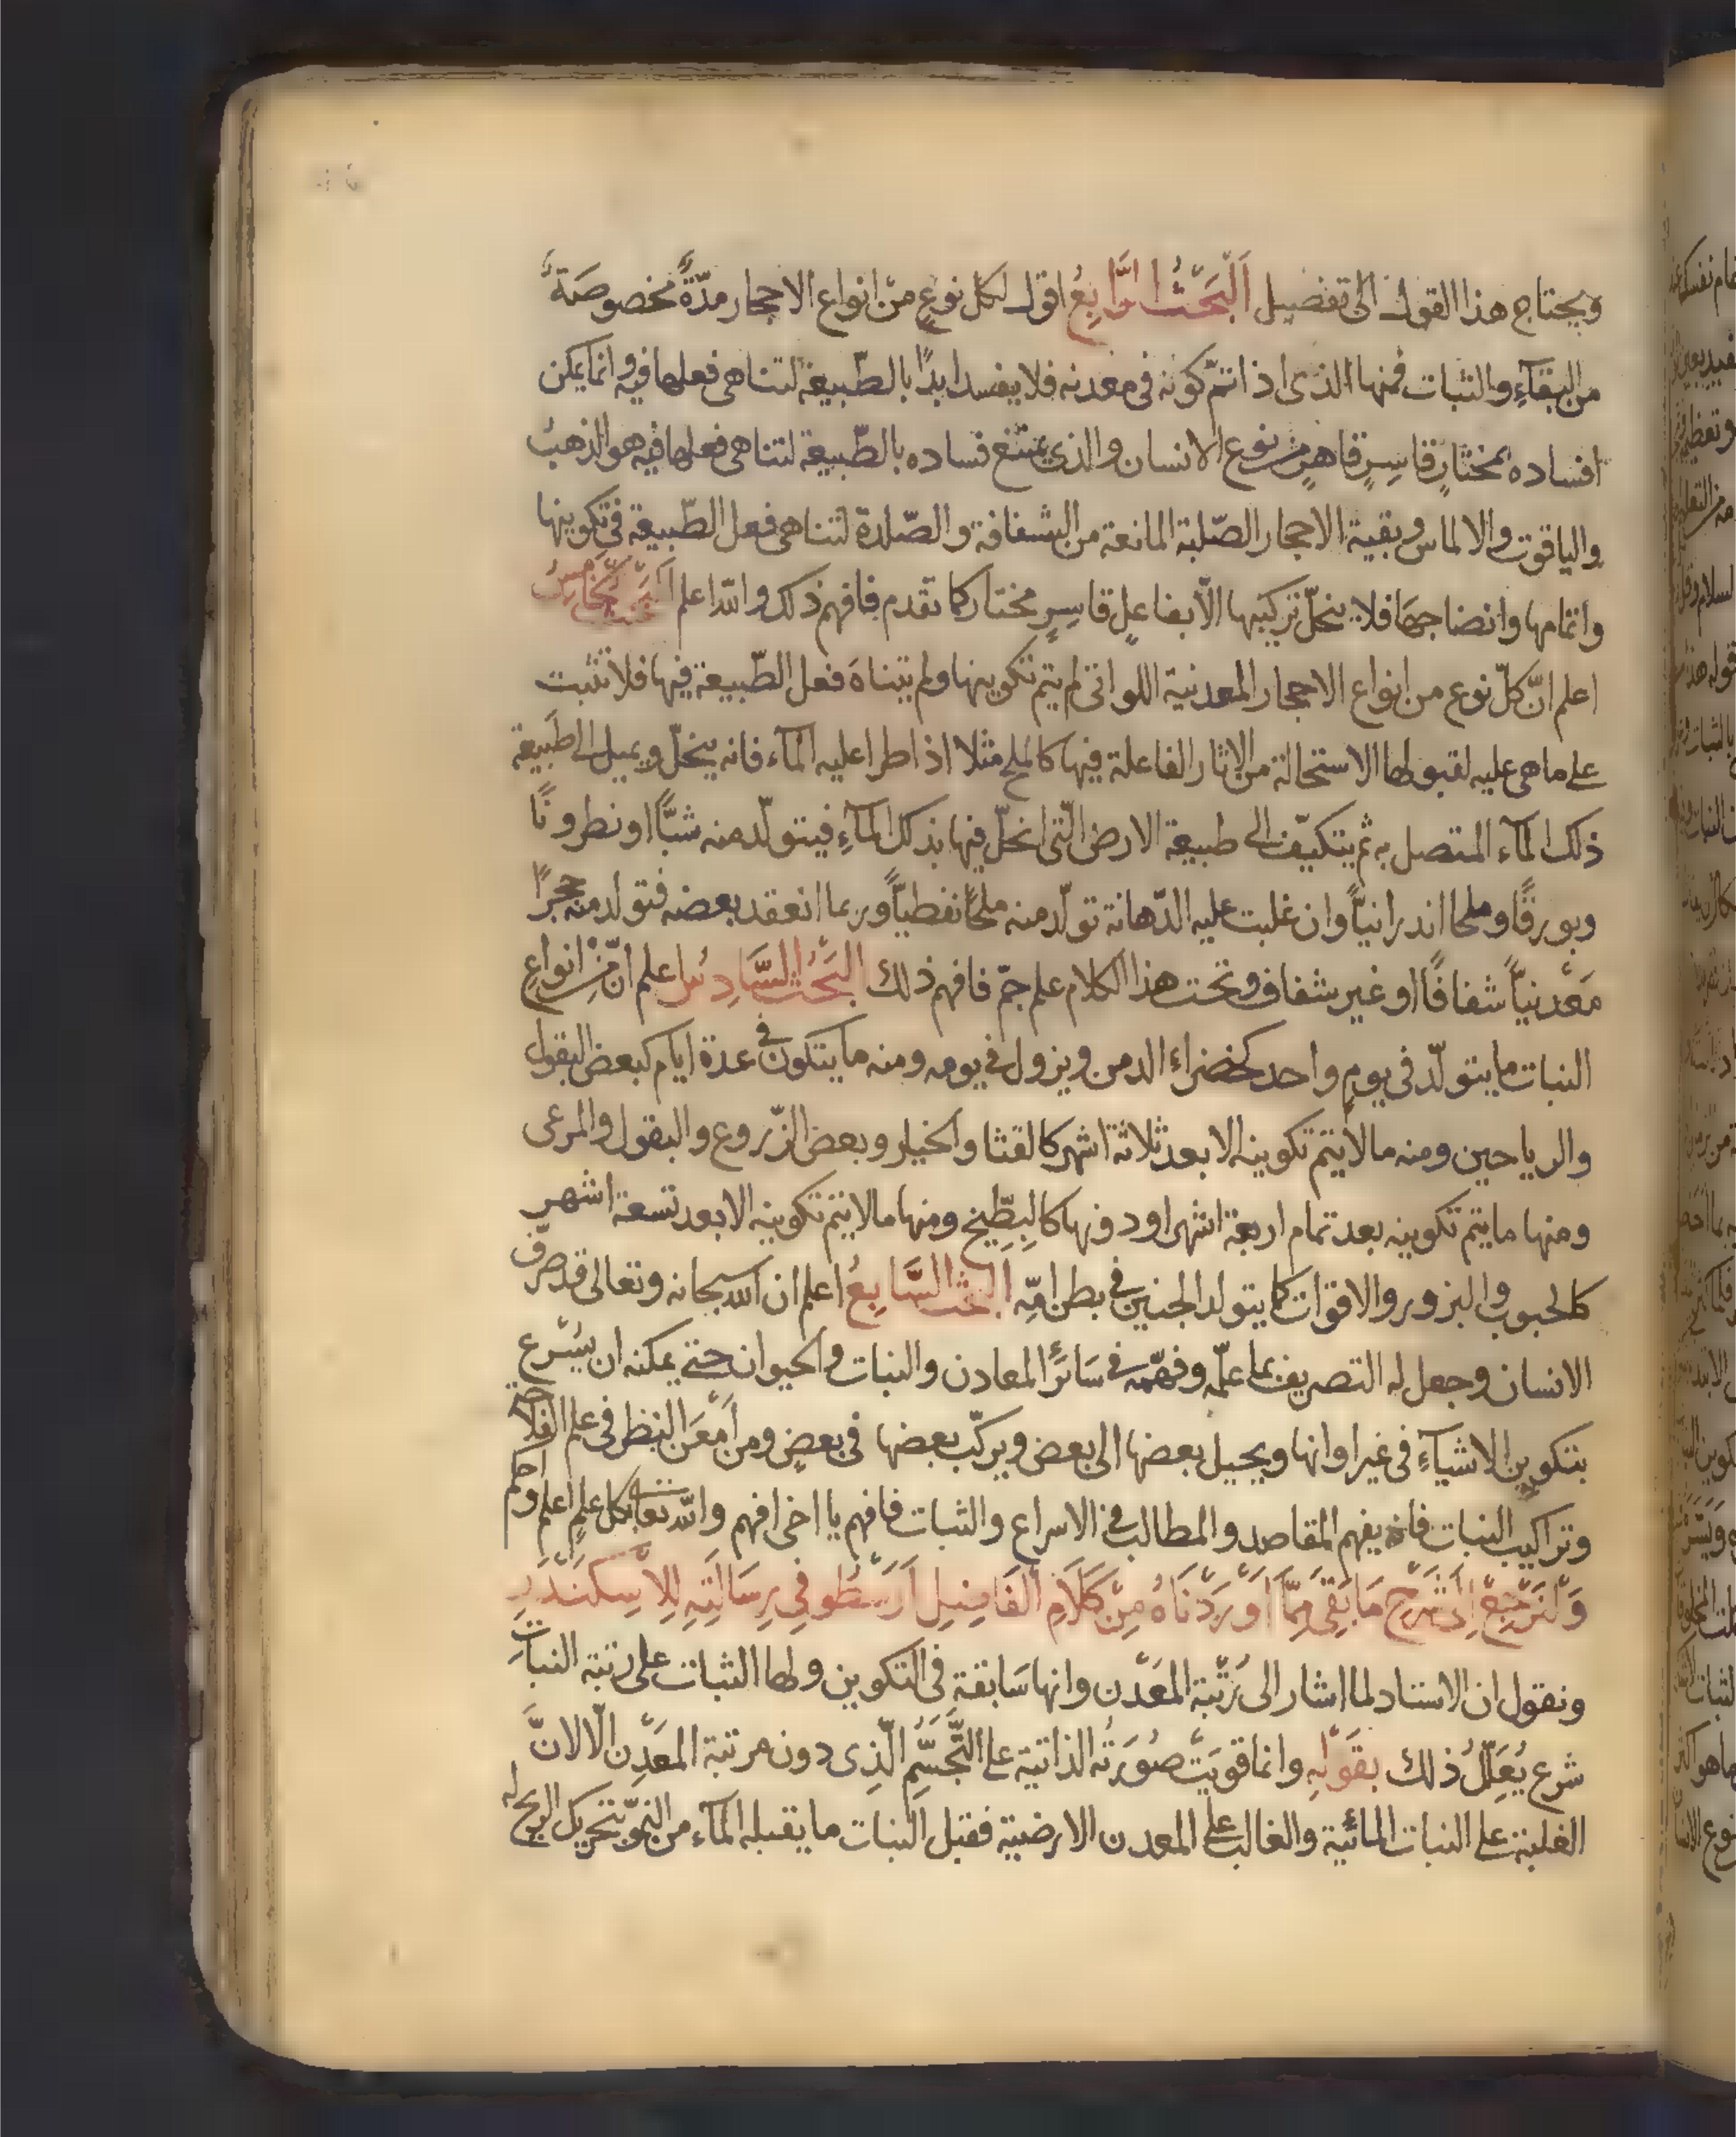 ويحتاج هذا القول الى تفضيل اَلْبَحْثُ الرَّابِعُ اقول لكل نوعٍ من انواع الاحجار مدّةً مخصوصَةً
من البقآءِ والثبات فمنها الذى اذا تمّ كونه فى معدنه فلا يفسد ابدًا بالطّبيعة لتناهى فعلها فيه وانما يمكن
افساده بمختارٍ قاسِرٍ قاهرٍ من نوع الانسان والذى يمتنع فساده بالطّبيعة لتناهى فعلها فيه هو الذهبُ
والياقوت والالماس وبقية الاحجار الصّلبة المانعة من الشفافة والصّلدة لتناهى فعل الطّبيعة فى تكوينها
واتمامها وانضاجهَا فلا ينحلّ تركيبها الّا بفاعلٍ قاسِرٍ مختار كما تقدم فافهم ذلك والله اعلم البحث الخامِسُ
اعلم انّ كلّ نوع من انواع الاحجار المعدنية اللواتى لم يتم تكوينها ولم يتناهَ فعل الطّبيعة فيها فلا تثبت
على ما هى عليه لقبولها الاستحالة من الاثار الفاعلة فيها كالملح مثلا اذا طرا عليه المآء فانه ينحلّ ويميل الى طَبيعة
ذلك المآء المتصل به ثم يتكيّف الى طبيعة الارض الّتى انحلّ فيها بذلك المآءِ فيتولّد منه شبًّا او نطرونًا
وبورقًا وملحا اندرانيًّا وان غلبت عليه الدّهانة تولّد منه ملحًا نفطيًّا وربما انعقد بعضه فتولد منه حجرًا
مَعْدنيًّا شفافًا او غير شفاف وتحت هذا الكلام علم جمّ فافهم ذلك البَحْثُ السَّادِسُ اعلم انّ مِنْ انواعِ
النبات ما يتولّد فى يومٍ واحد كخضراء الدمن ويزول فى يومه ومنه ما يتكون فى عدة ايام كبعض البقول
والرياحين ومنه ما لا يتم تكوينه الا بعد ثلاثة اشهر كالقثا والخيار وبعض الزّروع والبقول والمرعى
ومنها ما يتم تكوينه بعد تمام اربعة اشهر او دونها كالبِطِّيخ ومنها ما لا يتم تكوينه الا بعد تسعة اشهر
كالحبوب والبزور والاقوات كما يتولد الجنين فى بطن امّه البحث السَّابِعُ اعلم ان الله سبحانه وتعالى قد صرّف
الانسان وجعل له التصريف بما علّمه وفهّمه فى سَائر المعادن والنبات والحيوان حتى يمكنه ان يُسْرع
بتكوين الاشيآءِ فى غير اوانها ويحيل بعضها الى بعض ويركّب بعضها فى بعضٍ ومن اَمْعَنَ النظر فى علم الفلاحة
وتراكيب النبات فانه يفهم المقاصد والمطالب فى الاسراع والثبات فافهم يا اخى افهم والله تعالى بكل علمٍ اعلم واحكم
وَلْنَرْجِعْ اِلى شَرْحِ مَا بَقِىَ مِمَّا اَوْرَدْنَاهُ مِنْ كَلَامِ الفَاضِلِ اَرَسْطُو فِى رِسَالَتِهِ لِلْاِسْكَنْدَرِ
ونقول ان الاستاد لما اشار الى رُتْبة المَعْدن وانها سَابقة فى التكوين ولها الثبات على رتبة النباتِ
شرع يُعَلِّلُ ذلك بقَوْلِهِ وانما قويَتْ صُوَرَتُه الذاتية على التَّجَسُّمِ الّذِى دون مرتبة المعَدْنِ الّا لانَّ
الغلبة على النبات المائية والغالب على المعدن الارضية فقبل النبات ما يقبله المآء من النموّ بتحريك الريح له